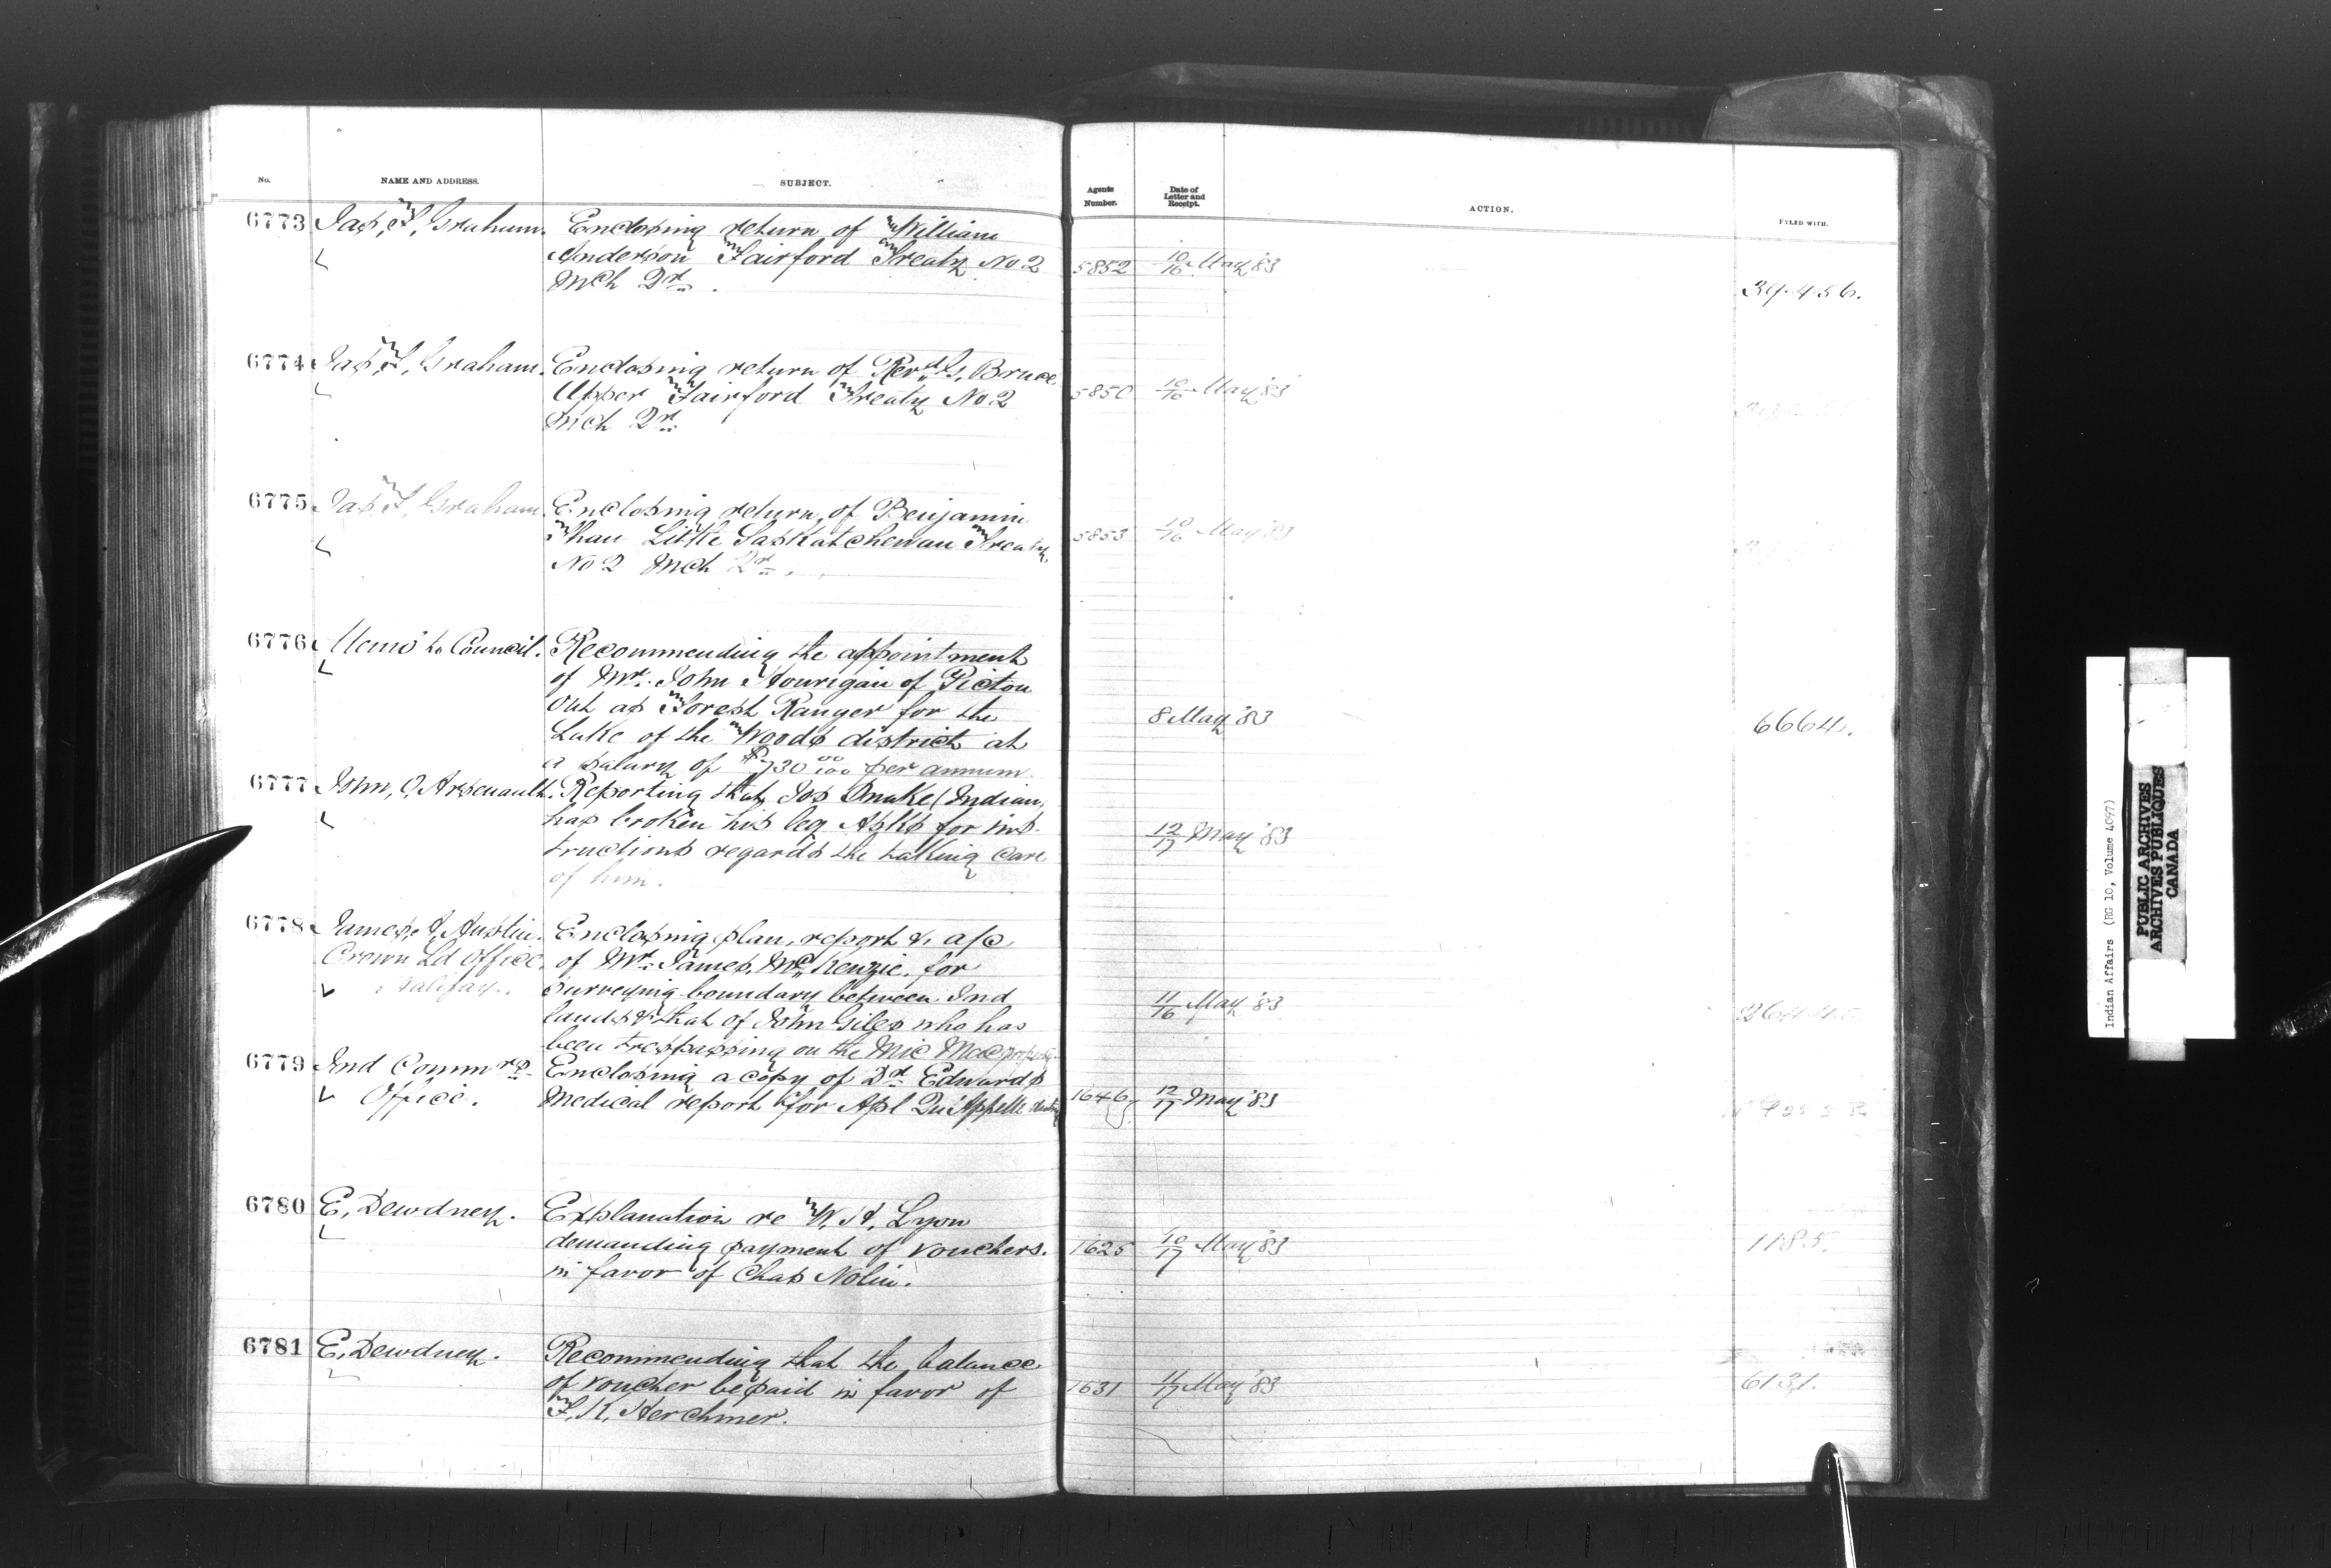 No. NAME AND ADDRESS. SUBJECT. Agents Number. Date of Letter and Receipt. ACTION. FYLED WITH.
6773 Jas, F, Graham. Enclosing return of William
Anderson Fairford Treaty No 2 5852 10/16 May '83
Mch Qr. 39.456.
6774 Jas, F, Graham. Enclosing return of Revd G, Bruce
Upper Fairford Treaty No 2 5850 10/16 May '83
Mch Qr.
6775 Jas, F, Graham. Enclosing return, of Benjamin
Little Saskatchewan Treaty 5853 10/16 May '83
No 2 Mch Qr.
6776 Memo to Council. Recommending the appointment
of Mr. John Hourigan of Picton
Ont as Forest Ranger for the 8 May '83 6664.
Lake of the Woods district at
a salary of $730 00/100 per annum.
6777 John, O, Arsenault. Reporting that Jos Snake (Indian,
has broken his leg Asks for ins- 12/17 May '83
tructions regards the taking care
of him.
6778 James, Austin. Enclosing plan, report & a/c
Crown Ld Office, of Mr. James, McKenzie, for
Halifax. surveying boundary between Ind 11/16 May '83
lands & that of John Giles who has
been trespassing on the Mic Mac property
6779 Ind Commrs Enclosing a copy of Dr Edwards
Office. Medical report for Apl Qu'Appelle 1646 12/17 May '83
6780 E, Dewdney. Explanation re W, H, Lyon
demanding payment of vouchers. 1625 10/17 May '83 1185.
in favor of Chas Nolin.
6781 E, Dewdney. Recommending that the balance
of voucher be paid in favor of 1631 11/17 May '83 6131.
F, K, Herchmer.
Indian Affairs (RG 10, Volume 4097)
PUBLIC ARCHIVES
ARCHIVES PUBLIQUES
CANADA